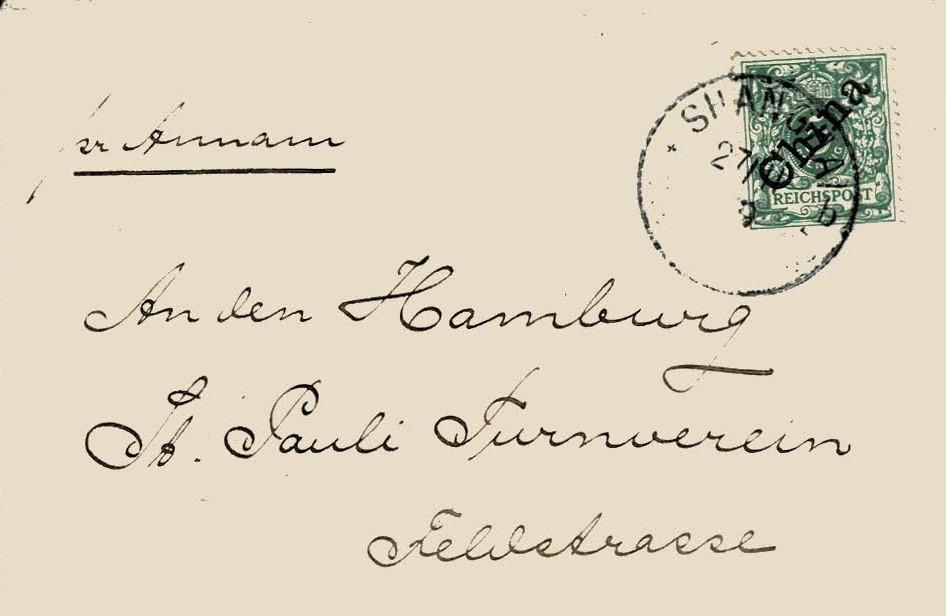 pr Annam
SHANGHAI
China
27/
9 b
REICHSPOST
An den Hamburg
St. Pauli Turnverein
Feldstrasse